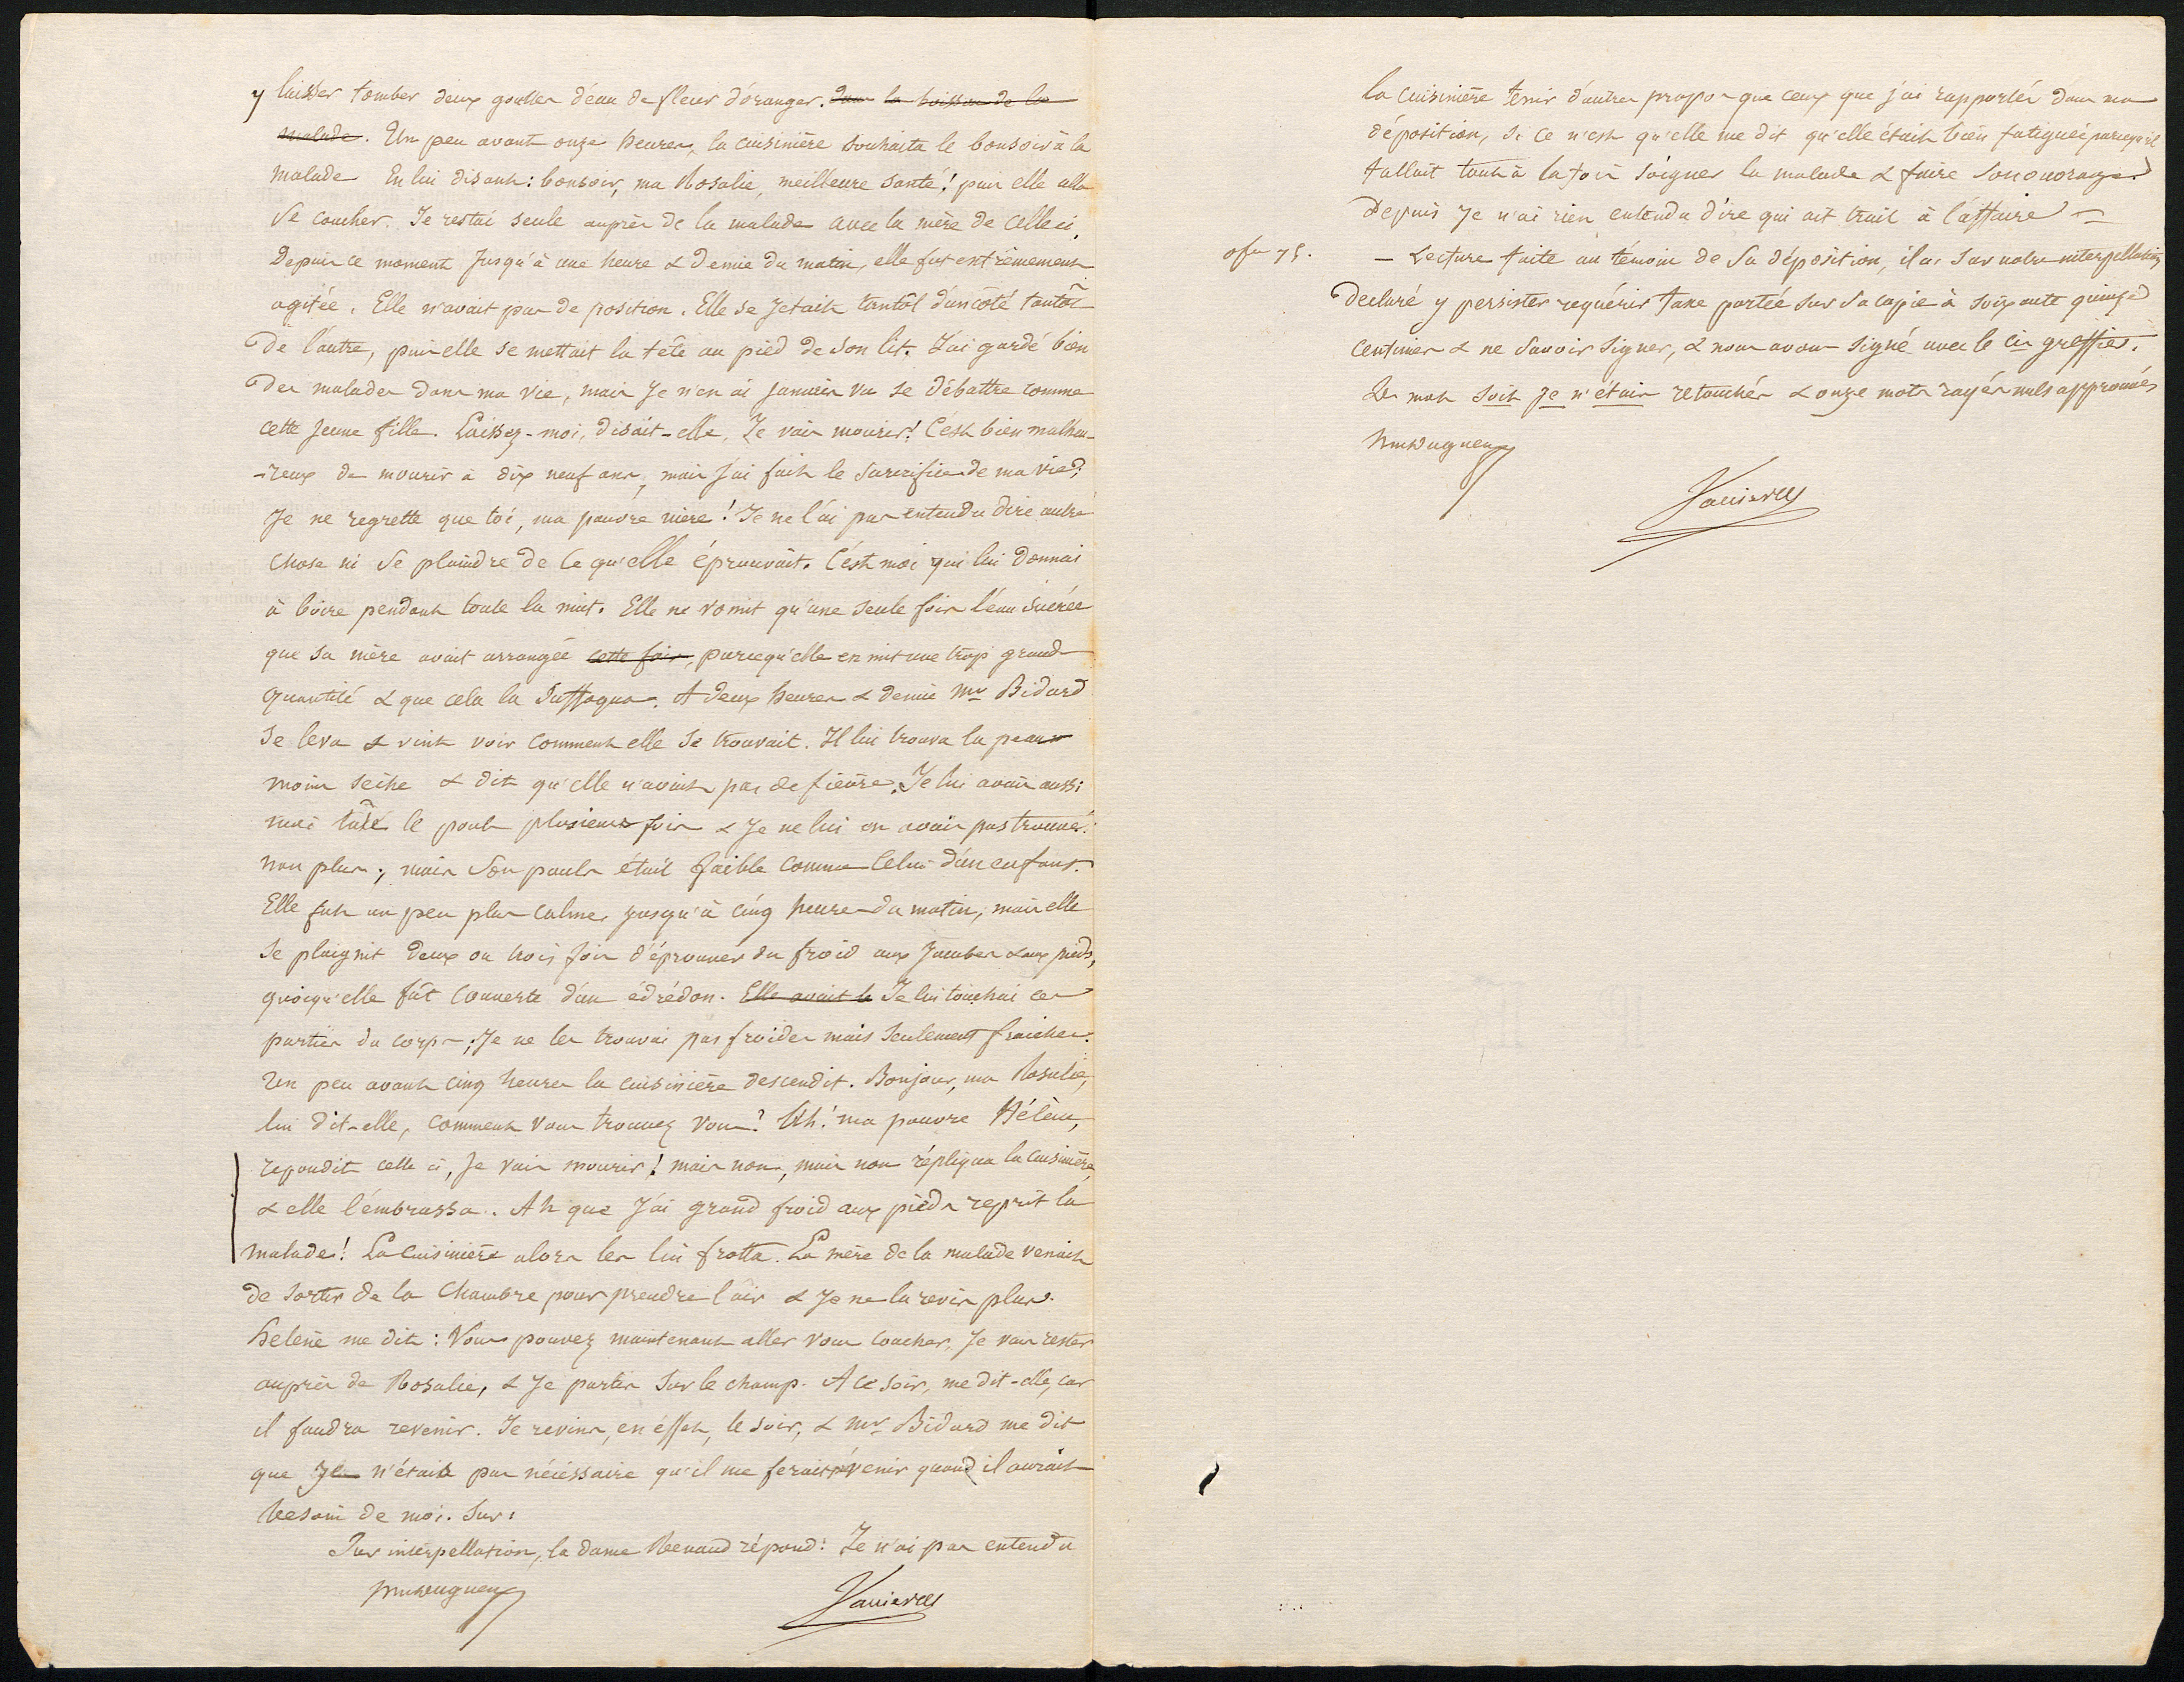 y laisser tomber deux gouttes d'eau de fleur d'oranger. dans la boisson de la
malade. Un peu avant onze heures, la cuisinière souhaita le bonsoir à la
malade en lui disant: bonsoir, ma Rosalie, meilleure santé! puis elle alla
se coucher. Je restai seule auprès de la malade avec la mère de celle ci.
Depuis ce moment jusqu'à une heure & demie du matin, elle fut extrêmement
agitée. Elle n'avait pas de position. Elle se jetait tantôt d'un côté tantôt
de l'autre, puis elle se mettait la tête au pied de son lit. J'ai gardé bien
des malades dans ma vie, mais je n'en ai jamais vu se débattre comme
cette jeune fille. Laissez-moi, disait-elle, Je vais mourir! C'est bien malheu-
-reux de mourir à dix neuf ans, mais j'ai fait le sacrifice de ma vie;
Je ne regrette que toi, ma pauvre mère! Je ne l'ai pas entendu dire autre
chose ni se plaindre de ce qu'elle éprouvait. C'est moi qui lui donnai
à boire pendant toute la nuit. Elle ne vomit qu'une seule fois l'eau sucrée
que sa mère avait arrangée cette fois, parcequ'elle en mit une trop grande
quantité & que cela la suffoqua. A deux heures & demie Mr Bidard
se leva & vint voir comment elle se trouvait. Il lui trouva la peau
moins sèche & dit qu'elle n'avait pas de fièvre. Je lui avais aussi
moi tâté le pouls plusieurs fois & je ne lui en avais pas trouvé
non plus; mais son pouls était faible comme celui d'un enfant.
Elle fut un peu plus calme jusqu'à cinq heures du matin; mais elle
se plaignit deux ou trois fois d'éprouver du froid aux jambes & aux pieds,
quoiqu'elle fût couverte d'un édrédon. Elle avait le Je lui touchai ces
parties du corps; je ne les trouvai pas froides mais seulement fraiches.
Un peu avant cinq heures la cuisinière descendit. Bonjour, ma Rosalie,
lui dit-elle, comment vous trouvez vous? Ah! ma pauvre Hélène,
repondit celle ci, je vais mourir! mais non, mais non répliqua la cuisinière
& elle l'embrassa. Ah que j'ai grand froid aux pieds reprit la
malade! La cuisinière alors les lui frotta. La mère de la malade venait
de sortir de la chambre pour prendre l'air & je ne la revis plus.
Helène me dit: Vous pouvez maintenant aller vous coucher, je vais rester
auprès de Rosalie, & je partis sur le champ. A ce soir, me dit-elle, car
il faudra revenir. Je revins, en effet, le soir, & Mr Bidard me dit
que je n'étais pas nécessaire qu'il me ferait prévenir quand il aurait
besoin de moi. Sur:
Sur interpellation, la dame Renaud répond: Je n'ai pas entendu
la cuisinière tenir d'autres propos que ceux que j'ai rapportés dans ma
déposition, si ce n'est qu'elle me dit qu'elle était bien fatiguée parcequ'il
fallait tout à la fois soigner la malade & faire son ouvrage.
Depuis je n'ai rien entendu dire qui ait trait à l'affaire —
ofr 75.
— Lecture faite au témoin de sa déposition, il a, sur notre interpellation,
declaré y persister requérir taxe portée sur sa copie à soixante quinze
centimes & ne savoir signer, & nous avons signé avec le cis greffier.
Les mots soit je n'étais retouchés & onze mots rayés nuls approuvés